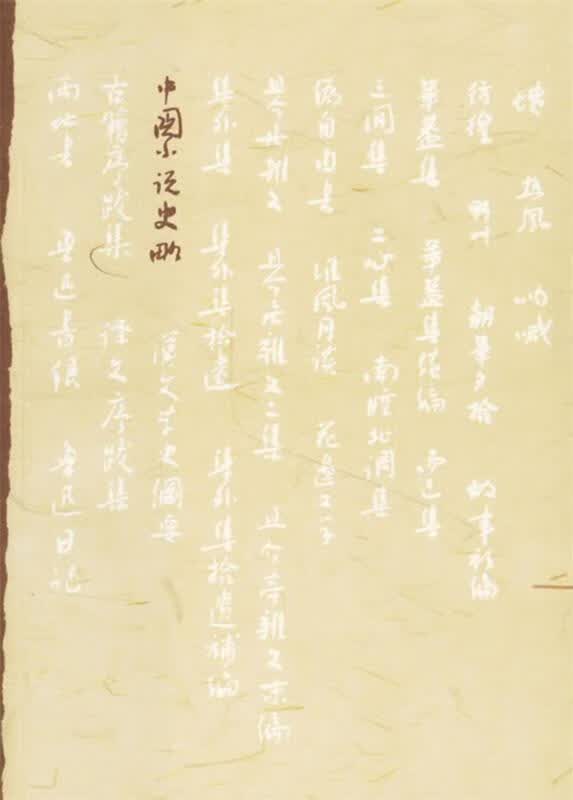 墳 热风 呐喊
彷徨 野草 朝華夕拾 故事新编
華蓋集 華蓋集续编 而已集
三闲集 二心集 南腔北调集
偽自由书 准风月谈 花邊文学
且介亭雜文 且介亭雜文二集 且介亭雜文末编
集外集 集外集拾遗 集外集拾遗補编
中國小说史略 漢文学史綱要
古籍序跋集 译文序跋集
两地书 鲁迅書信 鲁迅日记